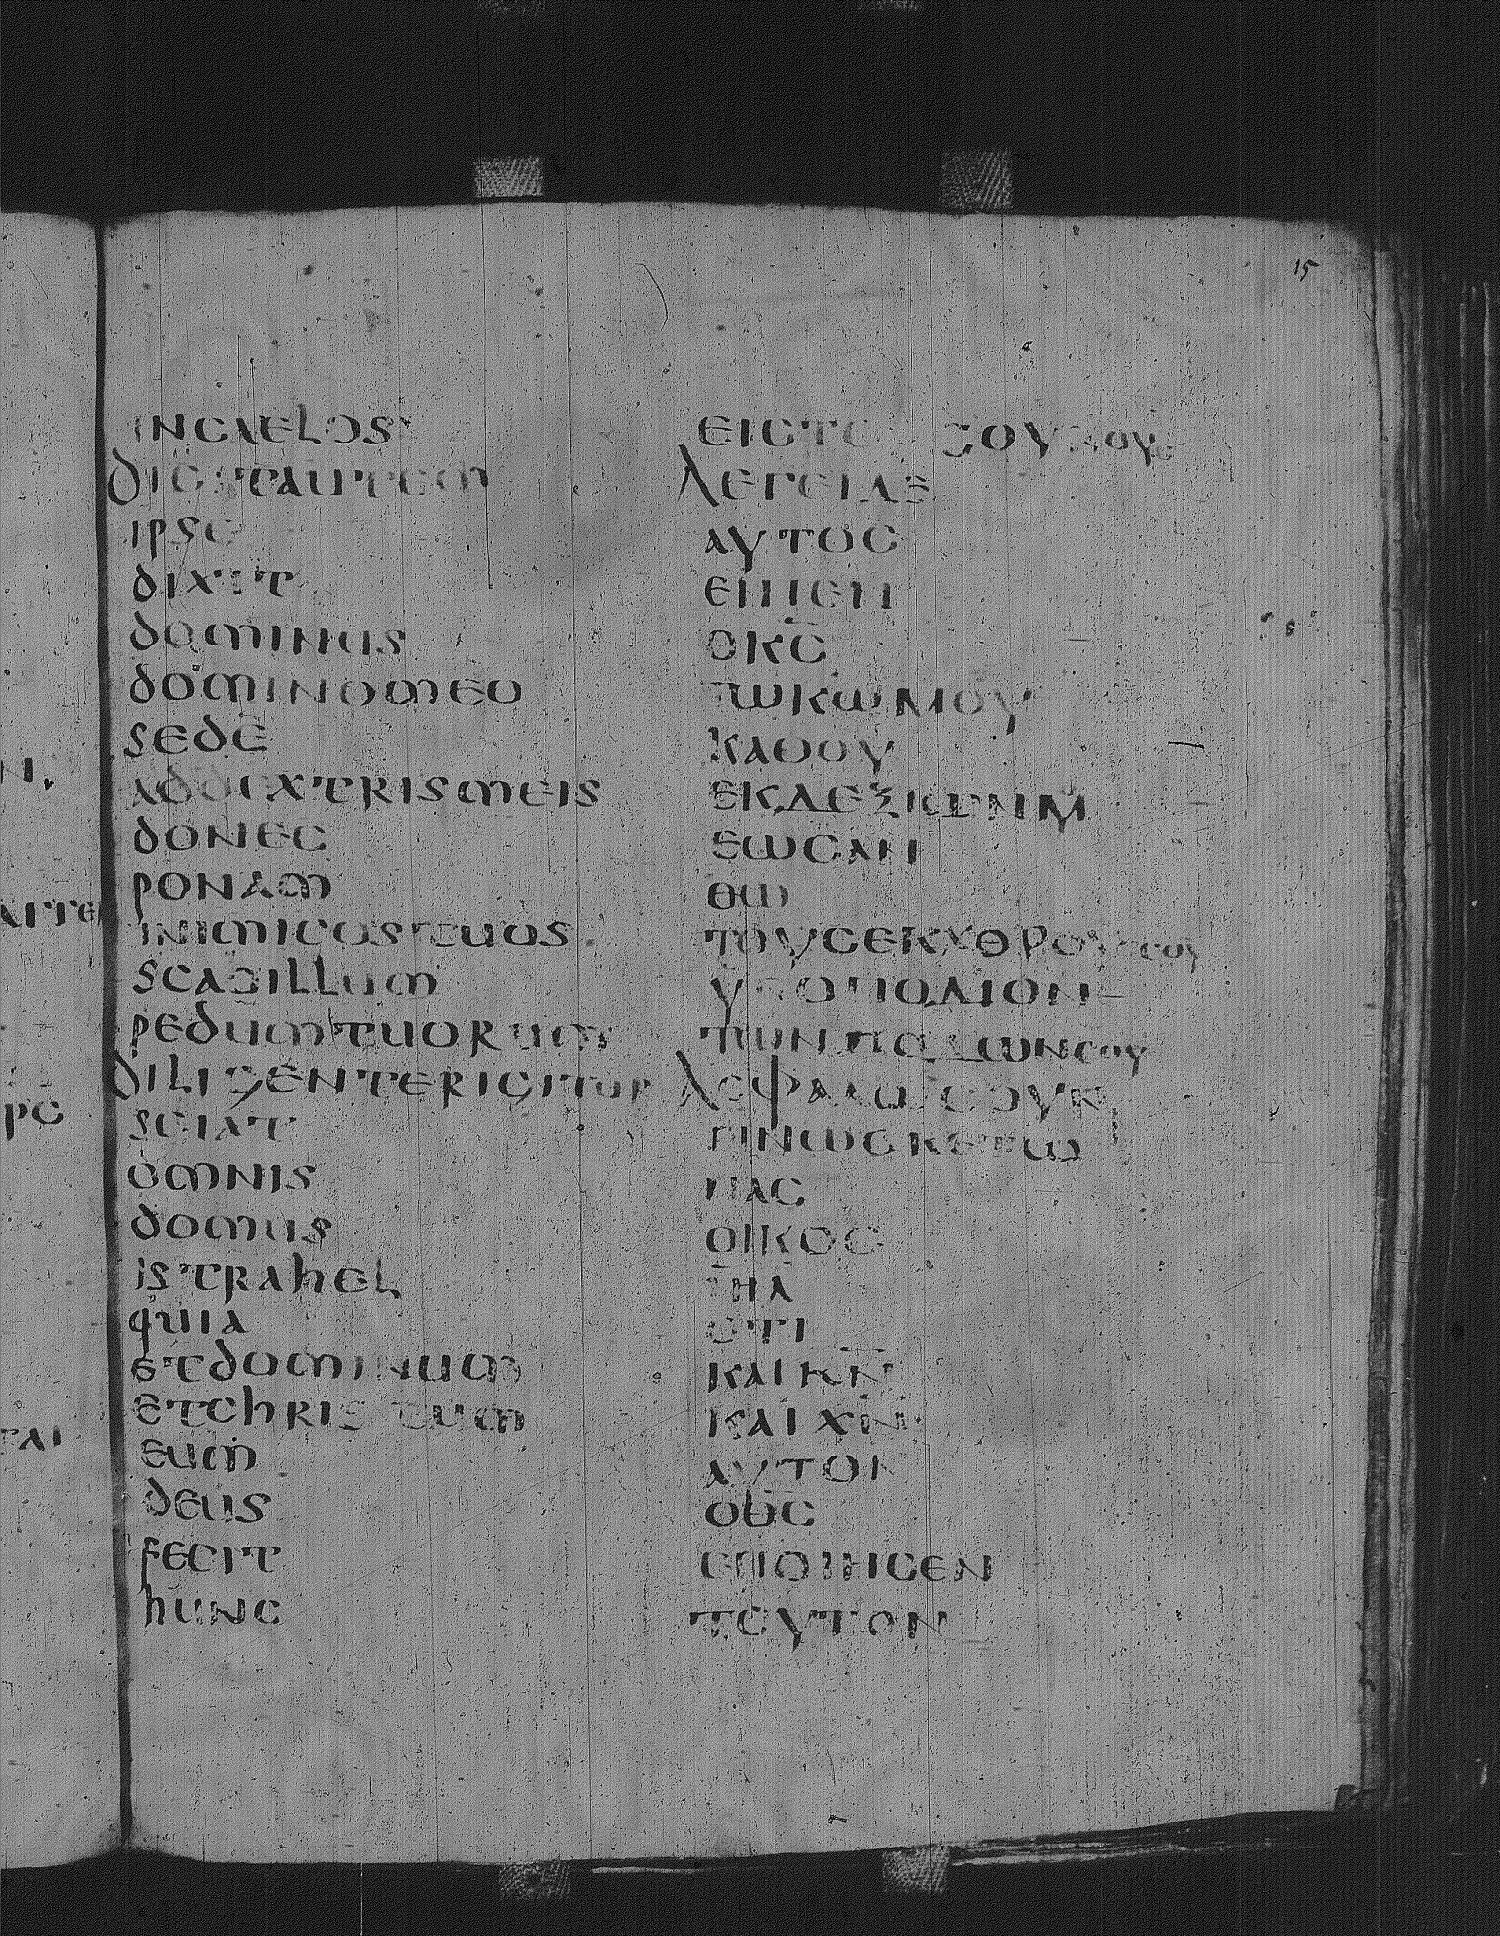 INCAELOS
DICITAUTEM
IPSE
DIXIT
DOMINUS
DOMINOMEO
SEDE
ADDEXTRISMEIS
DONEC
PONAM
INIMICOSTUOS
SCABILLUM
PEDUMTUORUM
DILIGENTERIGITUR
SCIAT
OMNIS
DOMUS
ISTRAHEL
QUIA
ETDOMINUM
ETCHRISTUM
EUM
DEUS
FECIT
HUNC
15
ΕΙϹΤΟΥϹΟΥΝΟΥϹ
ΛΕΓΕΙΔΕ
ΑΥΤΟϹ
ΕΙΠΕΝ
ΟΚ̅Ϲ̅
ΤΩΚΩΜΟΥ
ΚΑΘΟΥ
ΕΚΔΕΞΙΩΝΜ
ΕΩϹΑΝ
ΘΩ
ΤΟΥϹΕΚΧΘΡΟΥϹϹΟΥ
ΥΠΟΠΟΔΙΟΝ
ΤΩΝΠΟΔΩΝϹΟΥ
ΑϹΦΑΛΩϹΟΥΝ
ΓΙΝΩϹΚΕΤΩ
ΠΑϹ
ΟΙΚΟϹ
Ι̅Η̅Λ̅
ΟΤΙ
ΚΑΙΚ̅Ν̅
ΚΑΙΧ̅Ν̅
ΑΥΤΟΝ
ΟΘ̅Ϲ̅
ΕΠΟΙΗϹΕΝ
ΤΟΥΤΟΝ